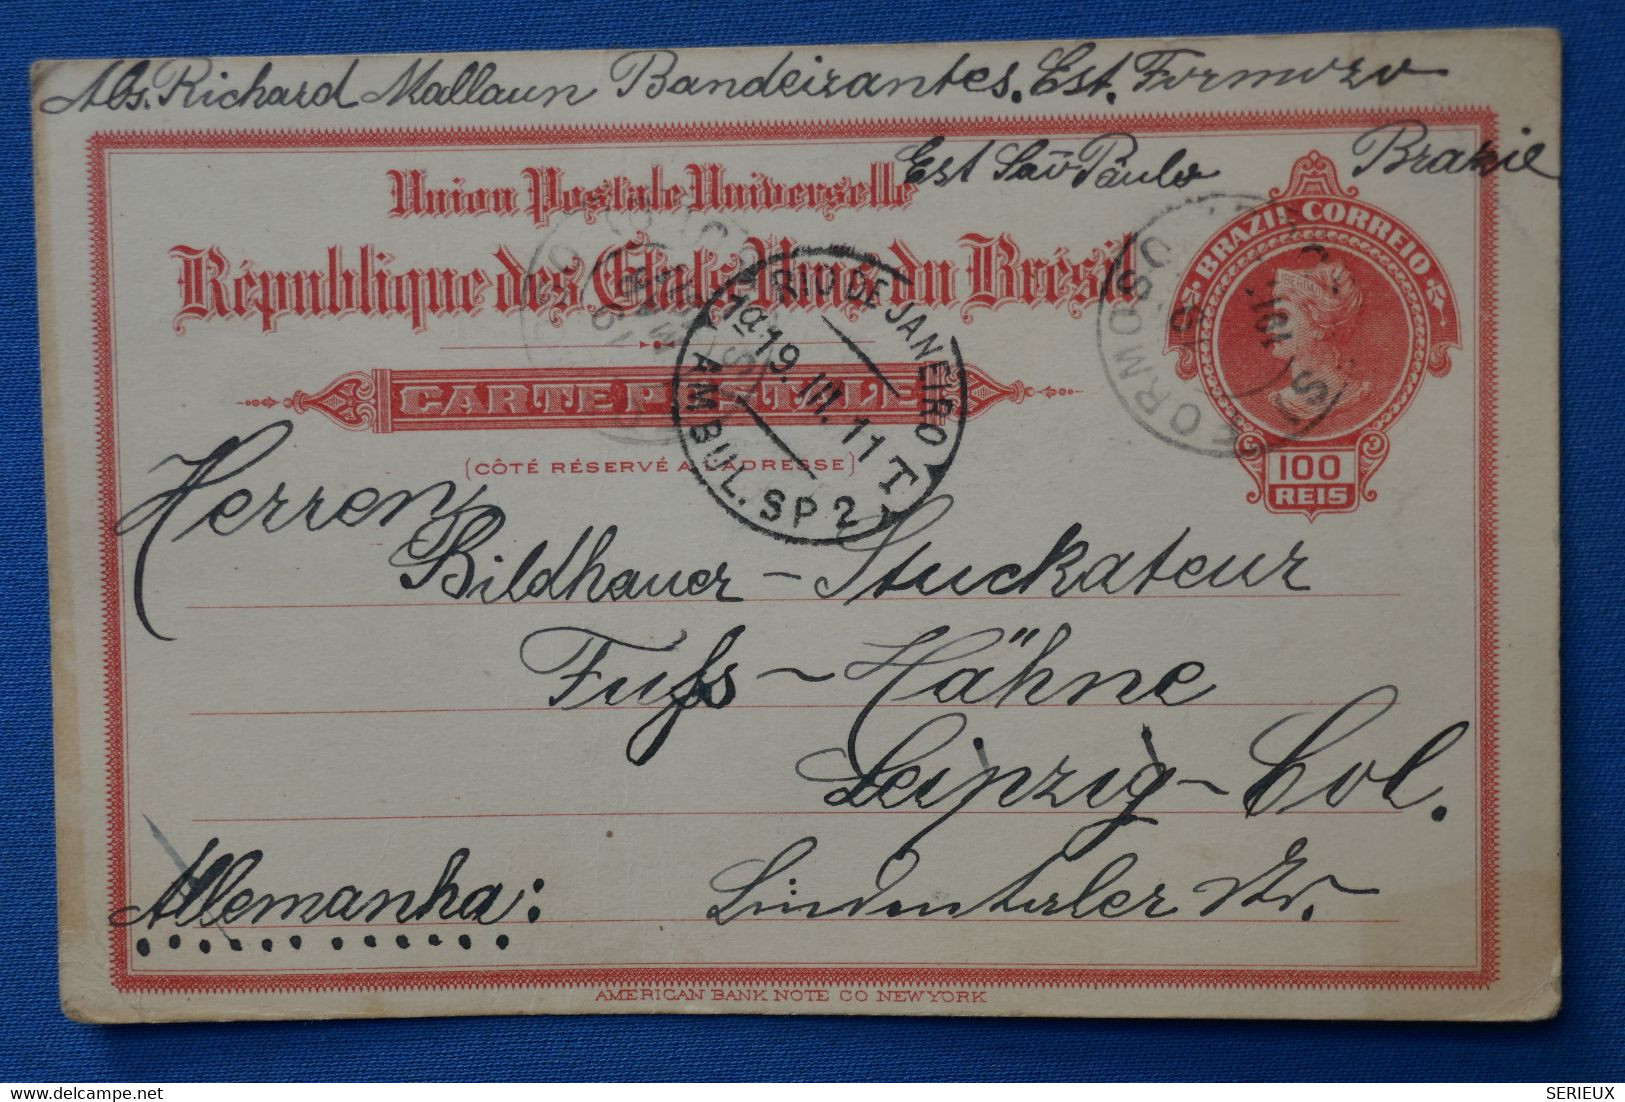 Abs. Richard Mallaun Bandeirantes. Est. Formozo
Est São Paulo Brazil
Union Postale Universelle
République des États-Unis du Brésil
BRAZIL CORREIO
FORMOSO
RIO DE JANEIRO
1ª 19. III. 11 T
AMBUL. SP 2
CARTE POSTALE
(CÔTÉ RÉSERVÉ A L'ADRESSE)
100
REIS
Herren
Bildhauer - Stuckateur
Fuss - Hähne
Leipzig - Col.
Allemanha: Lindentaler
AMERICAN BANK NOTE CO NEW YORK
SERIEUX